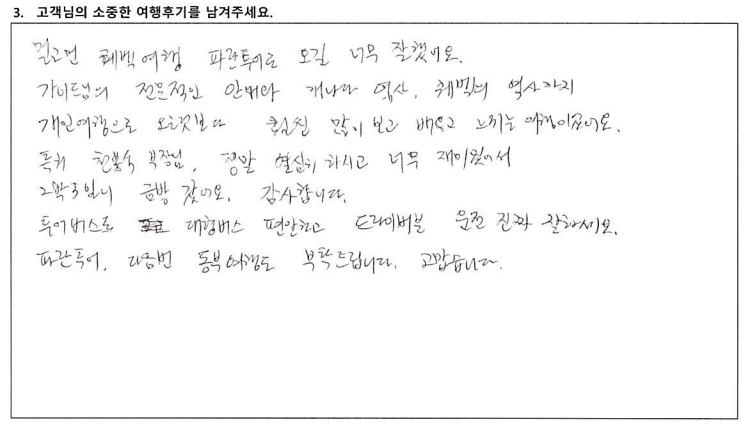 3. 고객님의 소중한 여행후기를 남겨주세요.
멀고먼 퀘벡여행 파란투어로 오길 너무 잘했어요.
가이드님의 전문적인 안내와 캐나다 역사, 퀘벡의 역사까지
개인여행으로 오는것보다 훨씬 많이 보고 배우고 느끼는 여행이었어요.
특히 부장님, 정말 열심히 하시고 너무 재미있어서
2박3일이 금방 갔어요. 감사합니다.
투어버스도 대형버스 편안하고 드라이버분 운전 진짜 잘하세요.
파란투어, 다음번 동부여행도 부탁드립니다. 고맙습니다.